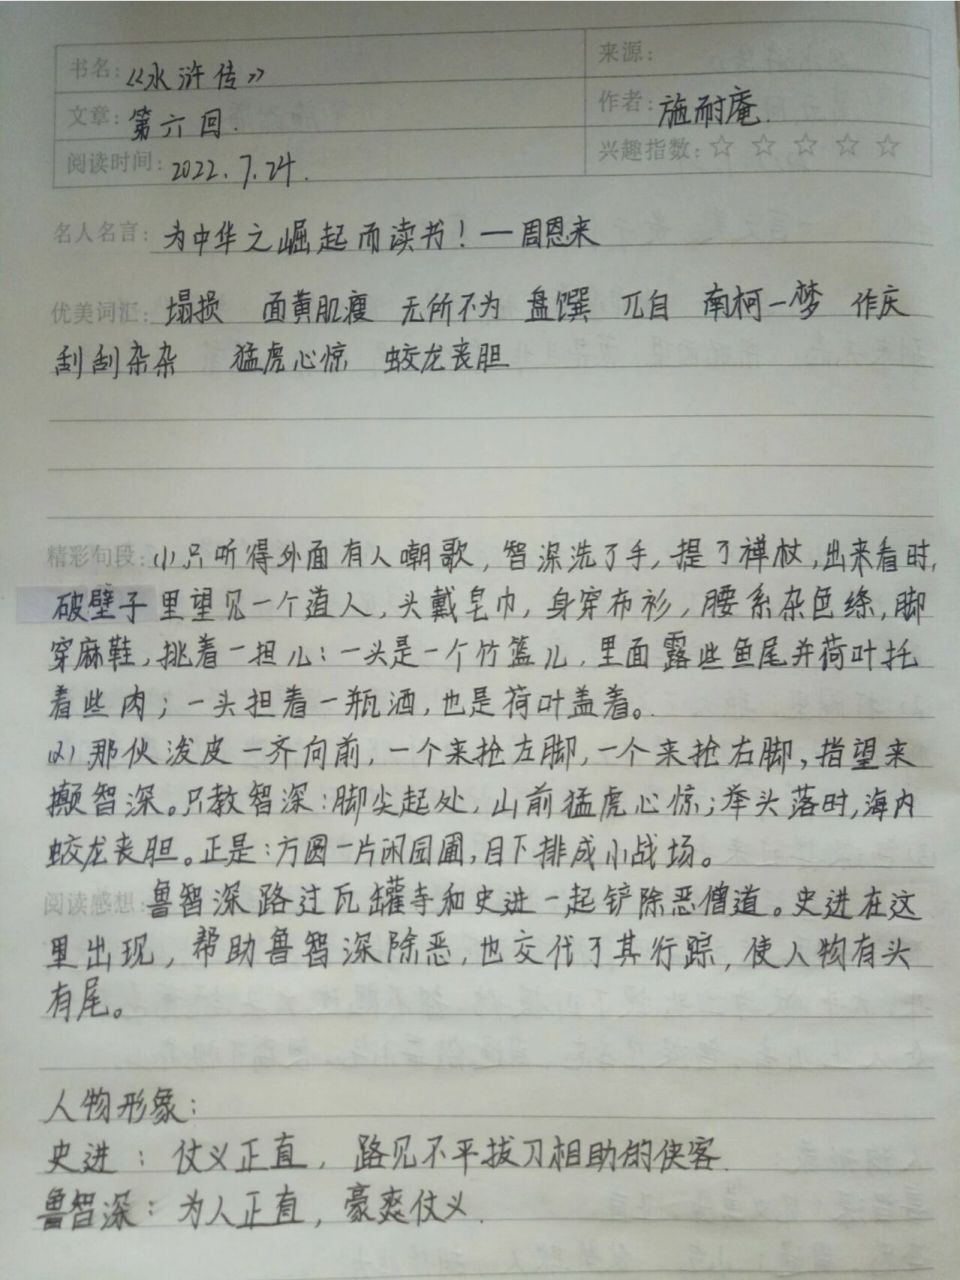 书名：《水浒传》
来源：
文章：第六回.
作者：施耐庵.
阅读时间：2022.7.24.
兴趣指数：☆ ☆ ☆ ☆ ☆
名人名言：为中华之崛起而读书！—周恩来
优美词汇：塌损 面黄肌瘦 无所不为 盘馔 兀自 南柯一梦 作庆
刮刮杂杂 猛虎心惊 蛟龙丧胆
精彩句段：(1)只听得外面有人嘲歌，智深洗了手，提了禅杖，出来看时，
破壁子里望见一个道人，头戴皂巾，身穿布衫，腰系杂色绦，脚
穿麻鞋，挑着一担儿：一头是一个竹篮儿，里面露些鱼尾并荷叶托
着些肉；一头担着一瓶酒，也是荷叶盖着。
(2)那伙泼皮一齐向前，一个来抢左脚，一个来抢右脚，指望来
攧智深。只教智深：脚尖起处，山前猛虎心惊；拳头落时，海内
蛟龙丧胆。正是：方圆一片闲园圃，目下排成小战场。
阅读感想：鲁智深路过瓦罐寺和史进一起铲除恶僧道。史进在这
里出现，帮助鲁智深除恶，也交代了其行踪，使人物有头
有尾。
人物形象：
史进：仗义正直，路见不平拔刀相助的侠客.
鲁智深：为人正直，豪爽仗义.